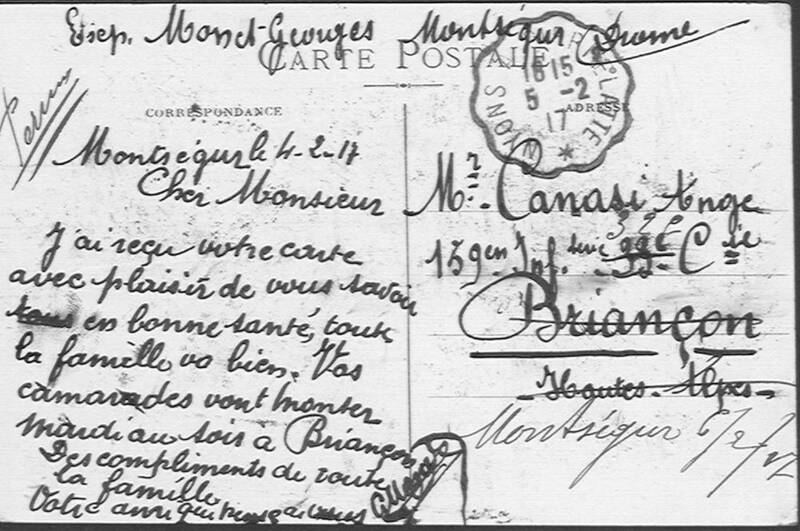 Exep. Monet-Georges Montségur Drome
CARTE POSTALE
CORRESPONDANCE
ADRESSE
16 15
5 -2
17
NYONS
Montségur le 4-2-17
Cher Monsieur
J'ai reçu votre carte
avec plaisir de vous savoir
en bonne santé, toute
la famille va bien. Vos
camarades vont monter
mardi au soir à Briançon
Des compliments de toute
la famille
Votre ami qui
Mr. Canasi Ange
159 em Inf. Cie
Briançon
Hautes-Alpes
Montségur 5/2/17